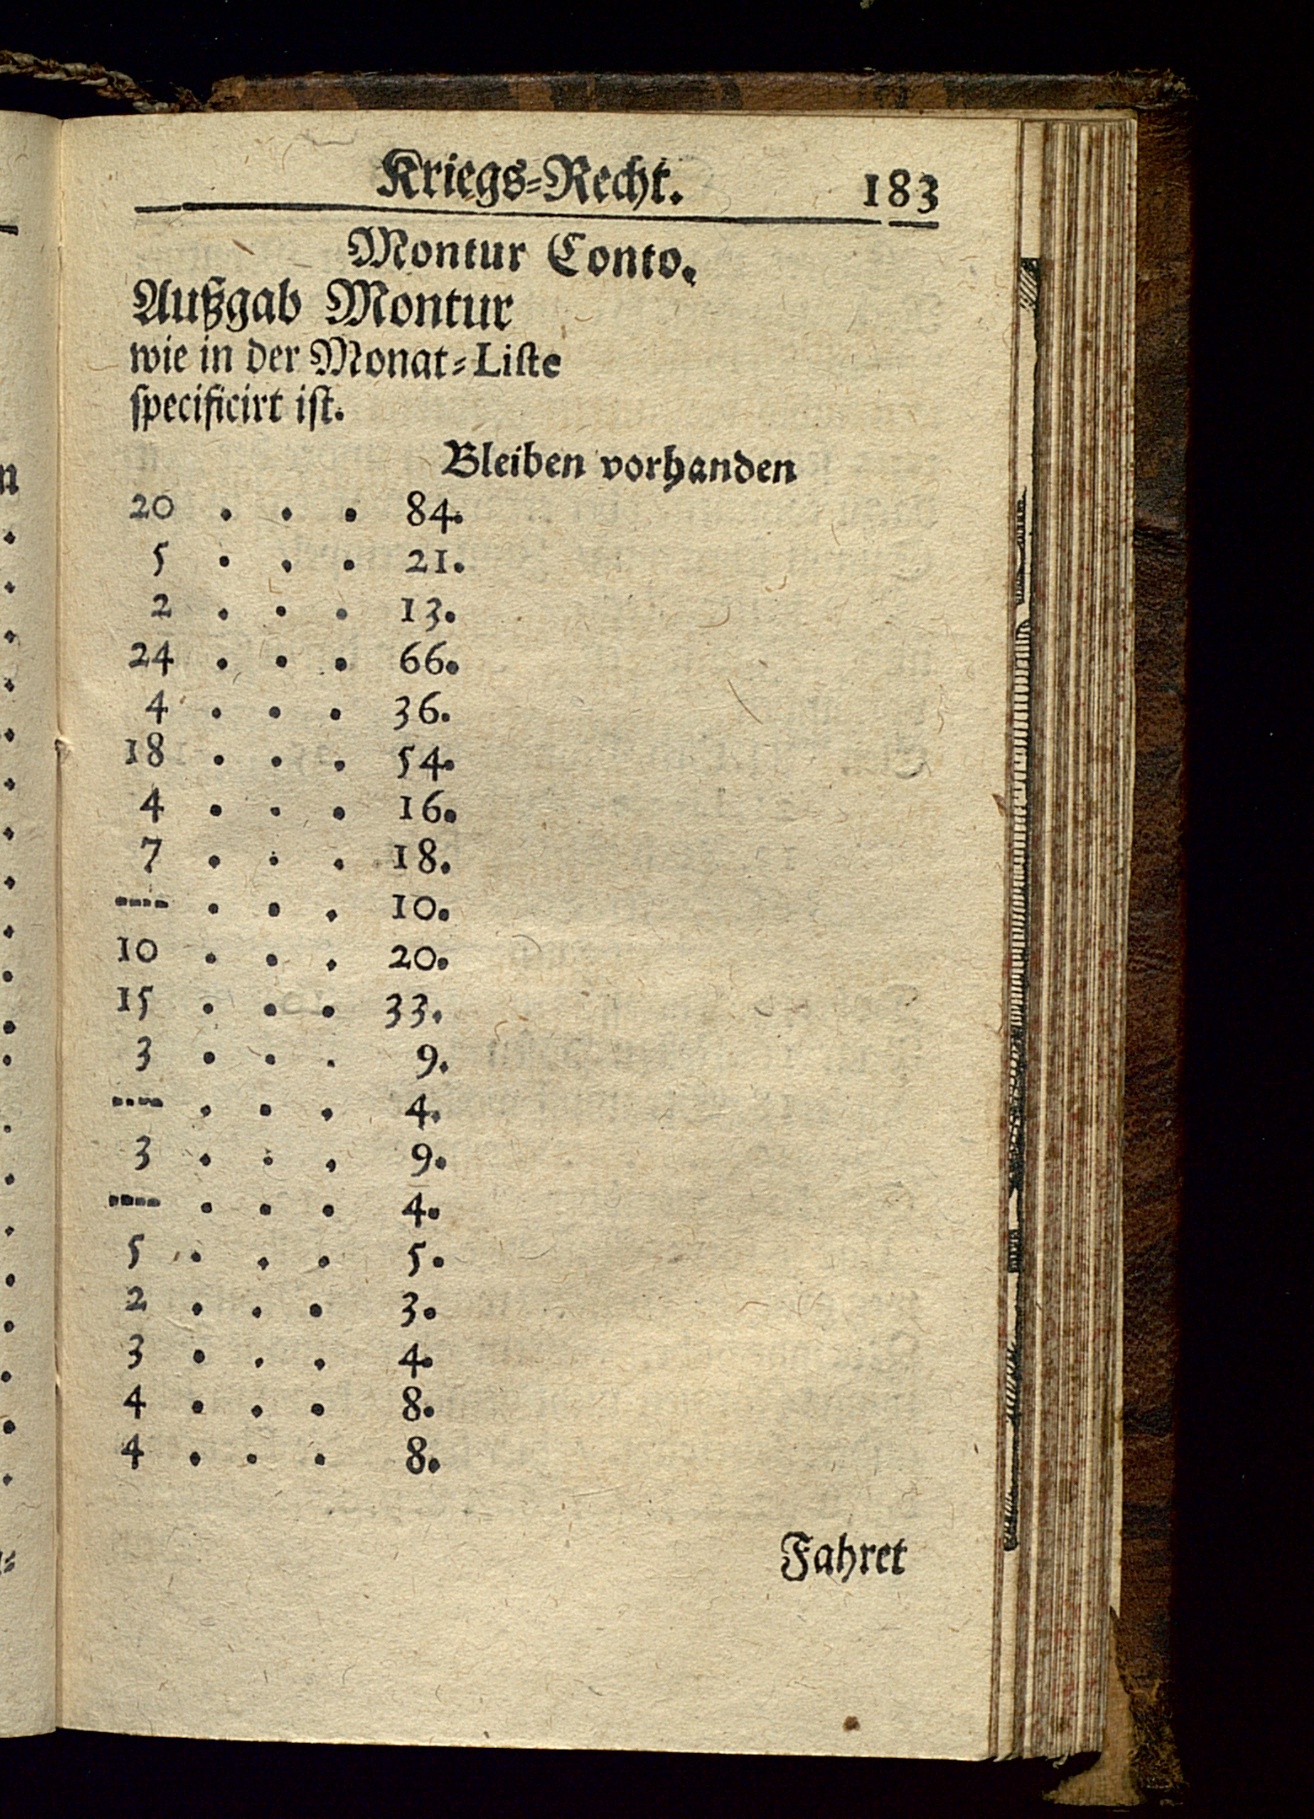 Kriegs-Recht. 183
Montur Conto.
Außgab Montur
wie in der Monat-Liſte
ſpecificirt iſt.
Bleiben vorhanden
20 . . . 84.
5 . . . 21.
2 . . . 13.
24 . . . 66.
4 . . . 36.
18 . . . 54.
4 . . . 16.
7 . . . 18.
---- . . . 10.
10 . . . 20.
15 . . . 33.
3 . . . 9.
---- . . . 4.
3 . . . 9.
---- . . . 4.
5 . . . 5.
2 . . . 3.
3 . . . 4.
4 . . . 8.
4 . . . 8.
Fahret